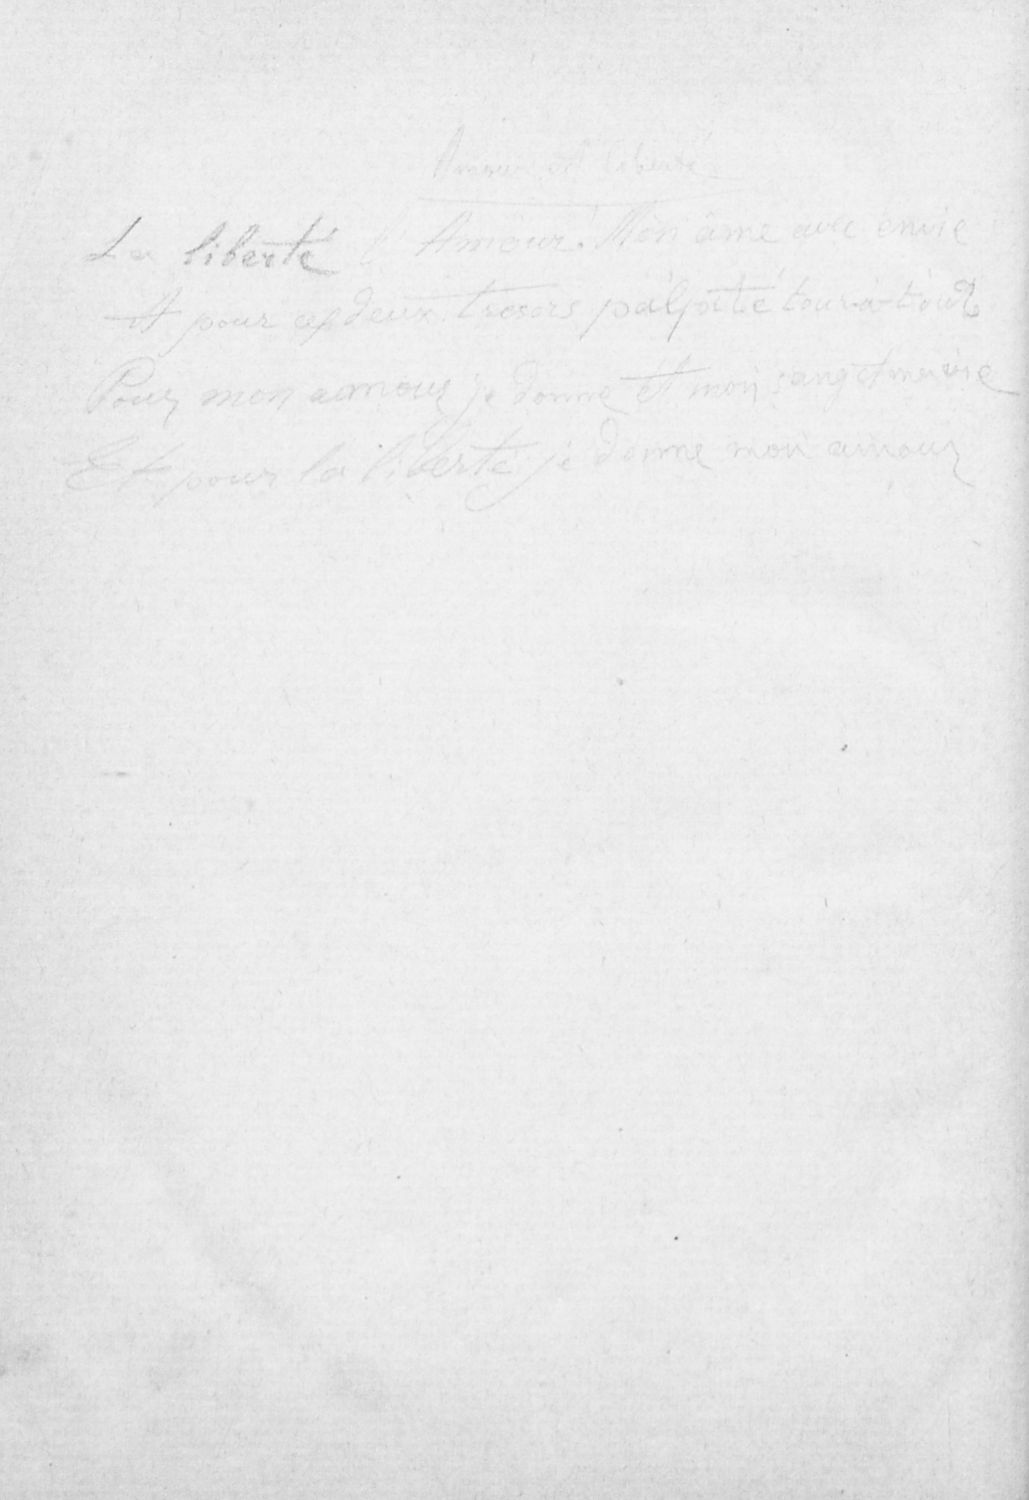 Amour et liberté
La liberté l'Amour. Mon âme avec envie
Et pour ces deux tresors palpite tour-à-tour
Pour mon amour je donne et mon sang et ma vie
Et pour la liberté je donne mon amour